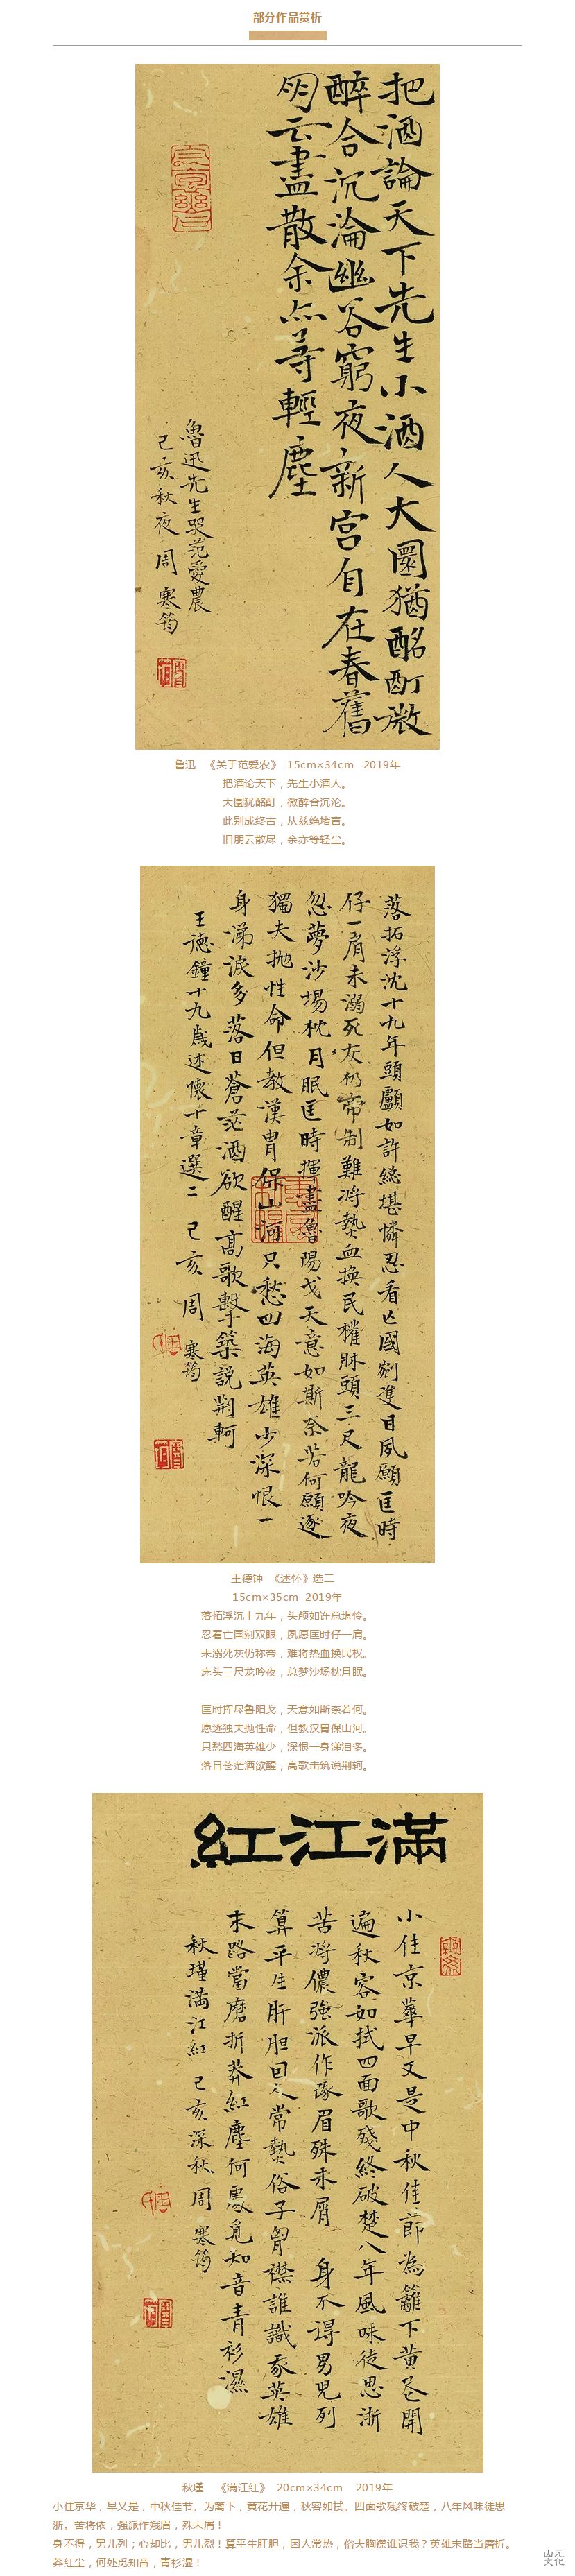 部分作品赏析
把酒論天下先生小酒人大圜猶酩酊微
醉合沉淪幽谷窮夜新宮自在春舊
朋云盡散余亦等輕塵
魯迅先生哭范愛農
己亥秋夜 周寒筠
鲁迅 《关于范爱农》 15cm×34cm 2019年
把酒论天下，先生小酒人。
大圜犹酩酊，微醉合沉沦。
此别成终古，从兹绝堵言。
旧朋云散尽，余亦等轻尘。
落拓浮沈十九年頭顱如許總堪憐忍看亡國剜雙目夙願匡時
仔一肩未溺死灰仍帝制難將熱血換民權牀頭三尺龍吟夜
忽夢沙場枕月眠匡時揮盡魯陽戈天意如斯奈若何願逐
獨夫拋性命但教漢冑保山河只愁四海英雄少深恨一
身涕淚多落日蒼茫酒欲醒高歌擊筑說荊軻
王德鐘十九歲述懷十章選二 己亥 周寒筠
王德钟 《述怀》选二
15cm×35cm 2019年
落拓浮沉十九年，头颅如许总堪怜。
忍看亡国剜双眼，夙愿匡时仔一肩。
未溺死灰仍称帝，难将热血换民权。
床头三尺龙吟夜，总梦沙场枕月眠。
匡时挥尽鲁阳戈，天意如斯奈若何。
愿逐独夫抛性命，但教汉胄保山河。
只愁四海英雄少，深恨一身涕泪多。
落日苍茫酒欲醒，高歌击筑说荆轲。
滿江紅
小住京華早又是中秋佳節為籬下黃花開
遍秋容如拭四面歌殘終破楚八年風味徒思浙
苦將儂強派作蛾眉殊未屑 身不得男兒列
算平生肝胆因人常熱俗子胷襟誰識我英雄
末路當磨折莽紅塵何處覓知音青衫濕
秋瑾滿江紅 己亥深秋 周寒筠
秋瑾 《满江红》 20cm×34cm 2019年
小住京华，早又是，中秋佳节。为篱下，黄花开遍，秋容如拭。四面歌残终破楚，八年风味徒思
浙。苦将侬，强派作娥眉，殊未屑！
身不得，男儿列；心却比，男儿烈！算平生肝胆，因人常热，俗夫胸襟谁识我？英雄末路当磨折。
莽红尘，何处觅知音，青衫湿！